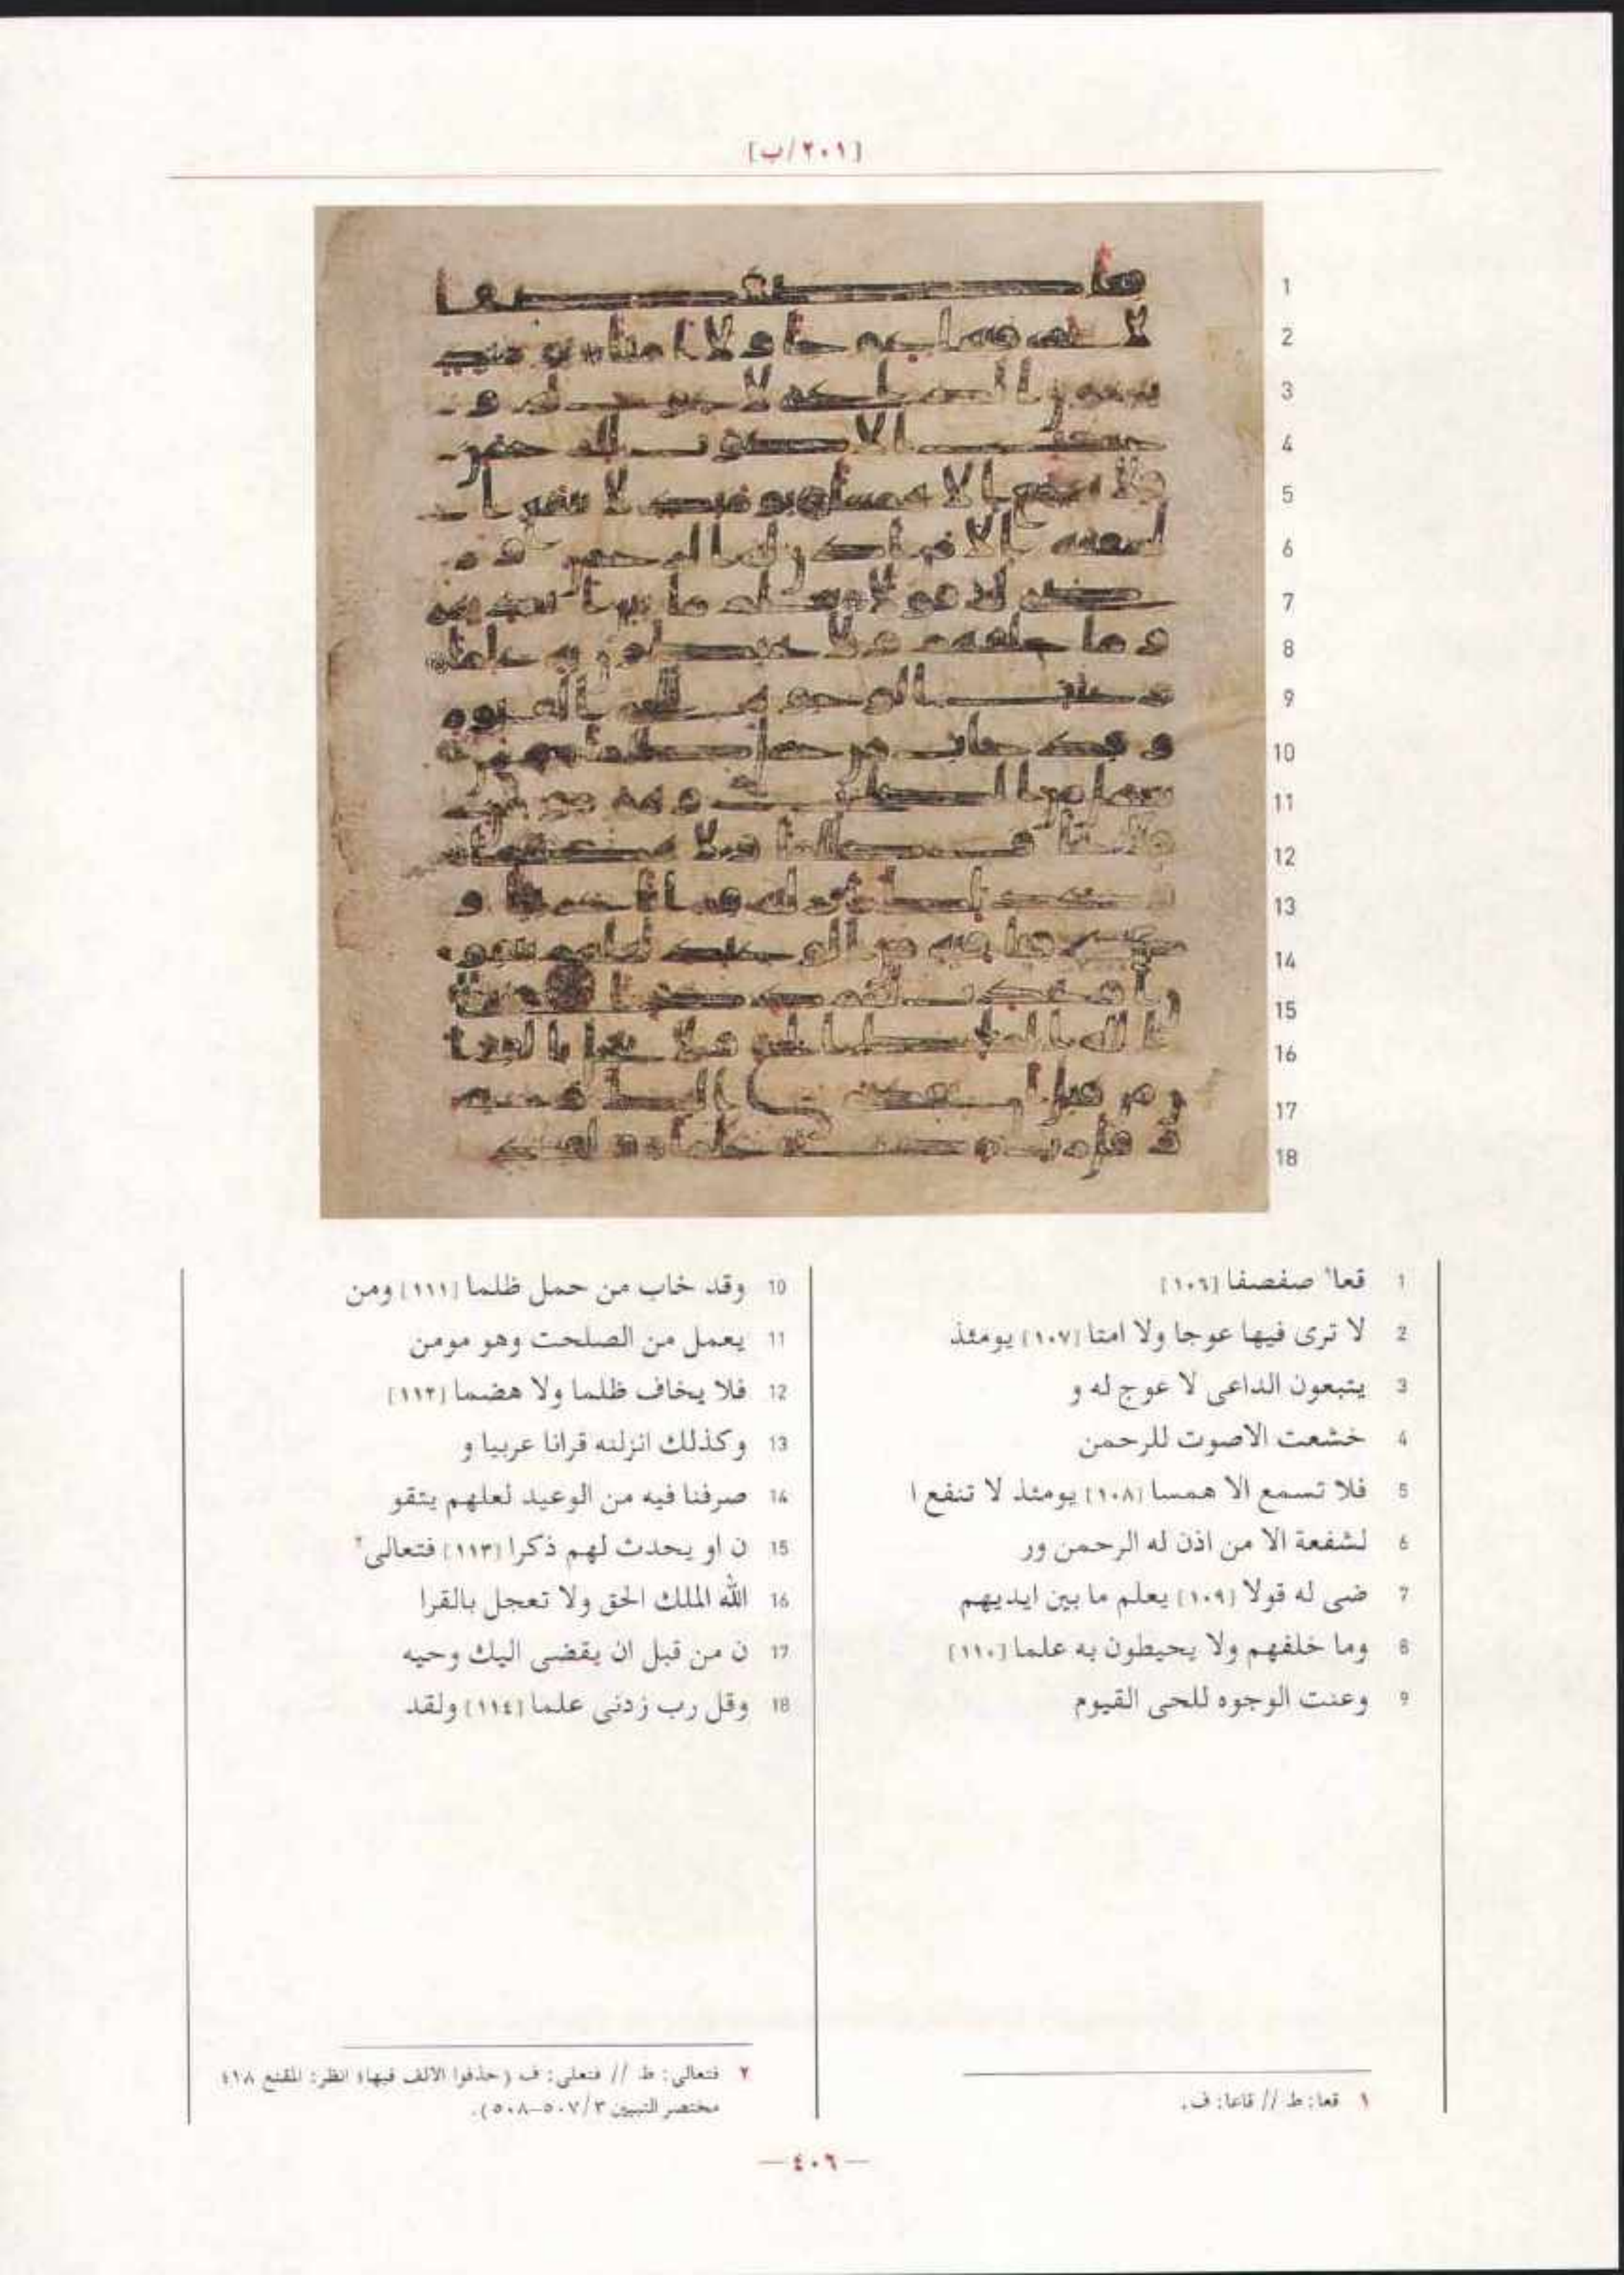 [٢٠١/ب]
1
2
3
4
5
6
7
8
9
10
11
12
13
14
15
16
17
18
1 قعا١ صفصفا [١٠٦]
2 لا ترى فيها عوجا ولا امتا [١٠٧] يومئذ
3 يتبعون الداعى لا عوج له و
4 خشعت الاصوت للرحمن
5 فلا تسمع الا همسا [١٠٨] يومئذ لا تنفع ا
6 لشفعة الا من اذن له الرحمن ور
7 ضى له قولا [١٠٩] يعلم ما بين ايديهم
8 وما خلفهم ولا يحيطون به علما [١١٠]
9 وعنت الوجوه للحى القيوم
10 وقد خاب من حمل ظلما [١١١] ومن
11 يعمل من الصلحت وهو مومن
12 فلا يخاف ظلما ولا هضما [١١٢]
13 وكذلك انزلنه قرانا عربيا و
14 صرفنا فيه من الوعيد لعلهم يتقو
15 ن او يحدث لهم ذكرا [١١٣] فتعالى٢
16 الله الملك الحق ولا تعجل بالقرا
17 ن من قبل ان يقضى اليك وحيه
18 وقل رب زدنى علما [١١٤] ولقد
١ قعا: ط // قاعا: ف.
٢ فتعالى: ط // فتعلى: ف (حذفوا الالف فيها؛ انظر: المقنع ١٨؛
مختصر التبيين ٣/٥٠٧-٥٠٨).
—٤٠٦—